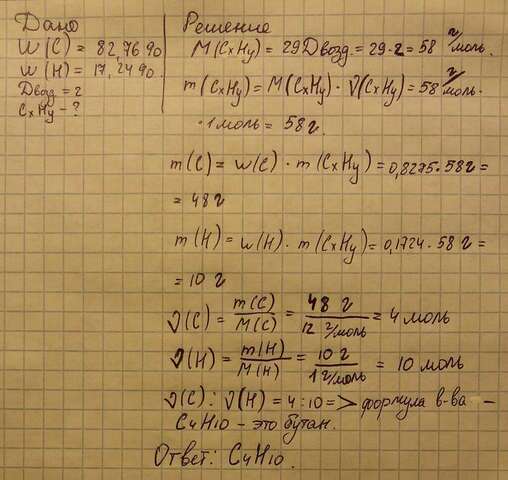 Дано
W(C) = 82,76%
W(H) = 17,24%
Dвозд = 2
CxHy - ?
Решение
M(CxHy) = 29Dвозд. = 29·2 = 58 г/моль.
m(CxHy) = M(CxHy)·ν(CxHy) = 58 г/моль·
·1моль = 58г.
m(C) = w(C)·m(CxHy) = 0,8275·58г =
= 48г
m(H) = w(H)·m(CxHy) = 0,1724·58г =
= 10г
ν(C) = m(C)/M(C) = 48 г/12 г/моль = 4 моль
ν(H) = m(H)/M(H) = 10г/1г/моль = 10 моль
ν(C):ν(H) = 4:10 => формула в-ва -
C4H10 - это бутан.
Ответ: C4H10.